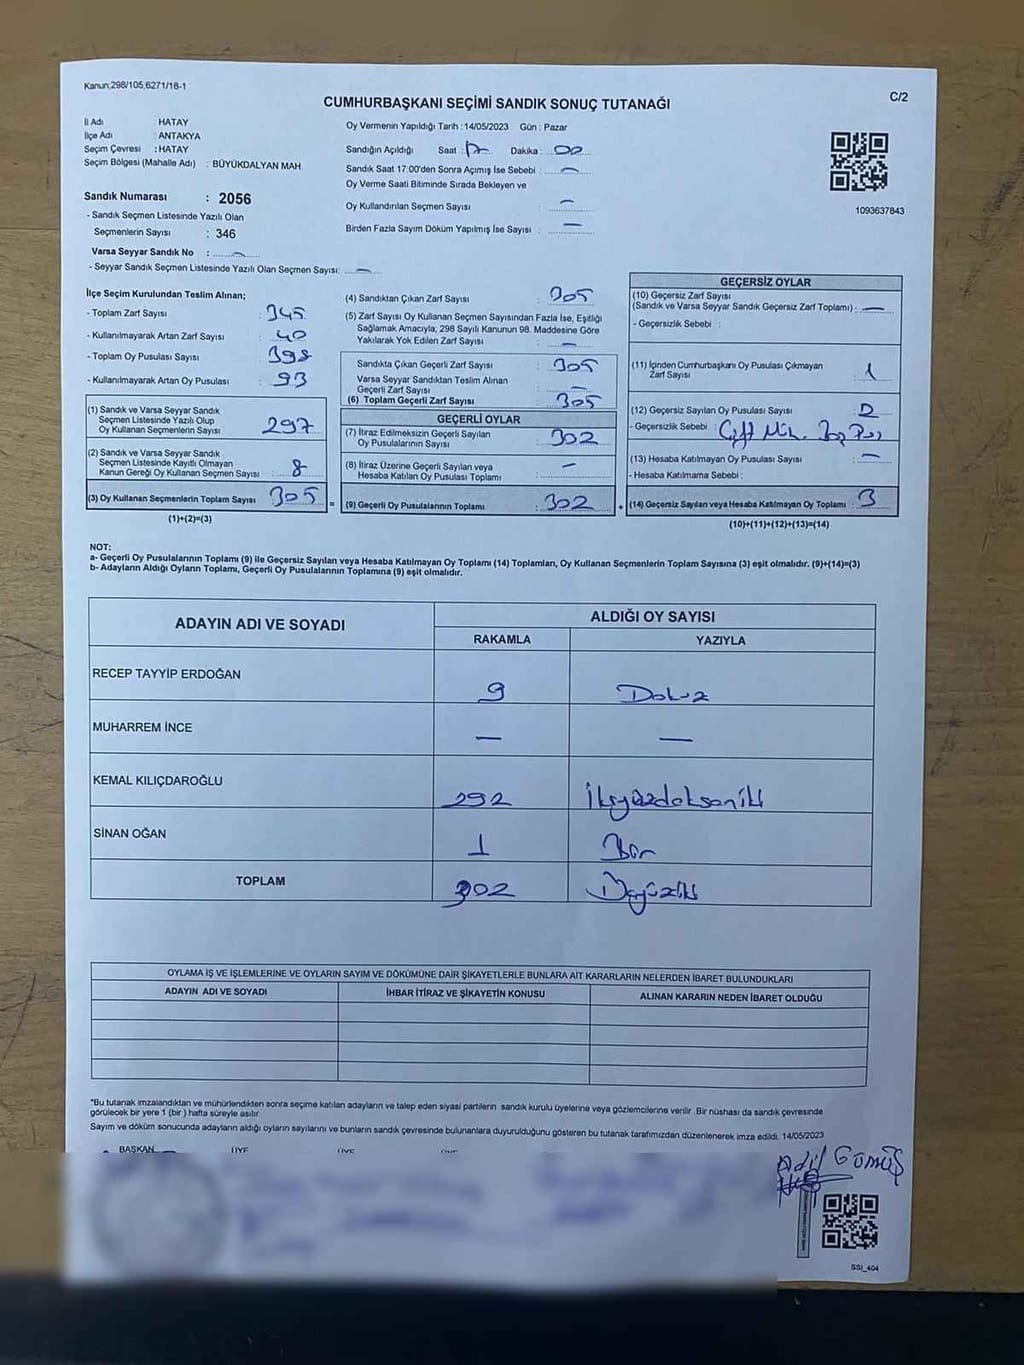 Kanun;298/105,6271/18-1
C/2
CUMHURBAŞKANI SEÇİMİ SANDIK SONUÇ TUTANAĞI
İl Adı : HATAY
İlçe Adı : ANTAKYA
Seçim Çevresi : HATAY
Seçim Bölgesi (Mahalle Adı) : BÜYÜKDALYAN MAH.
Sandık Numarası : 2056
- Sandık Seçmen Listesinde Yazılı Olan
Seçmenlerin Sayısı : 346
Varsa Seyyar Sandık No : —
- Seyyar Sandık Seçmen Listesinde Yazılı Olan Seçmen Sayısı: —
Oy Vermenin Yapıldığı Tarih :14/05/2023 Gün : Pazar
Sandığın Açıldığı Saat : 17 Dakika : 00
Sandık Saat 17:00'den Sonra Açımış İse Sebebi : —
Oy Verme Saati Bitiminde Sırada Bekleyen ve
Oy Kullandırılan Seçmen Sayısı : —
Birden Fazla Sayım Döküm Yapılmış İse Sayısı : —
1093637843
İlçe Seçim Kurulundan Teslim Alınan;
- Toplam Zarf Sayısı : 345
- Kullanılmayarak Artan Zarf Sayısı : 40
- Toplam Oy Pusulası Sayısı : 398
- Kullanılmayarak Artan Oy Pusulası : 93
(1) Sandık ve Varsa Seyyar Sandık
Seçmen Listesinde Yazılı Olup
Oy Kullanan Seçmenlerin Sayısı : 297
(2) Sandık ve Varsa Seyyar Sandık
Seçmen Listesinde Kayıtlı Olmayan
Kanun Gereği Oy Kullanan Seçmen Sayısı : 8
(3) Oy Kullanan Seçmenlerin Toplam Sayısı : 305
(1)+(2)=(3)
(4) Sandıktan Çıkan Zarf Sayısı : 305
(5) Zarf Sayısı Oy Kullanan Seçmen Sayısından Fazla İse, Eşitliği
Sağlamak Amacıyla, 298 Sayılı Kanunun 98. Maddesine Göre
Yakılarak Yok Edilen Zarf Sayısı : —
Sandıkta Çıkan Geçerli Zarf Sayısı : 305
Varsa Seyyar Sandıktan Teslim Alınan
Geçerli Zarf Sayısı : —
(6) Toplam Geçerli Zarf Sayısı : 305
GEÇERLİ OYLAR
(7) İtiraz Edilmeksizin Geçerli Sayılan
Oy Pusulalarının Sayısı : 302
(8) İtiraz Üzerine Geçerli Sayılan veya
Hesaba Katılan Oy Pusulası Toplamı : —
= (9) Geçerli Oy Pusulalarının Toplamı : 302 +
GEÇERSİZ OYLAR
(10) Geçersiz Zarf Sayısı
(Sandık ve Varsa Seyyar Sandık Geçersiz Zarf Toplamı) : —
- Geçersizlik Sebebi :
(11) İçinden Cumhurbaşkanı Oy Pusulası Çıkmayan
Zarf Sayısı : 1
(12) Geçersiz Sayılan Oy Pusulası Sayısı : 2
- Geçersizlik Sebebi : Çift Müh.
(13) Hesaba Katılmayan Oy Pusulası Sayısı : —
- Hesaba Katılmama Sebebi :
(14) Geçersiz Sayılan veya Hesaba Katılmayan Oy Toplamı : 3
(10)+(11)+(12)+(13)=(14)
NOT:
a- Geçerli Oy Pusulalarının Toplamı (9) ile Geçersiz Sayılan veya Hesaba Katılmayan Oy Toplamı (14) Toplamları, Oy Kullanan Seçmenlerin Toplam Sayısına (3) eşit olmalıdır. (9)+(14)=(3)
b- Adayların Aldığı Oyların Toplamı, Geçerli Oy Pusulalarının Toplamına (9) eşit olmalıdır.
ADAYIN ADI VE SOYADI ALDIĞI OY SAYISI
RAKAMLA YAZIYLA
RECEP TAYYİP ERDOĞAN 9 Dokuz
MUHARREM İNCE — —
KEMAL KILIÇDAROĞLU 292 İkiyüzdoksaniki
SİNAN OĞAN 1 Bir
TOPLAM 302 Üçyüziki
OYLAMA İŞ VE İŞLEMLERİNE VE OYLARIN SAYIM VE DÖKÜMÜNE DAİR ŞİKAYETLERLE BUNLARA AİT KARARLARIN NELERDEN İBARET BULUNDUKLARI
ADAYIN ADI VE SOYADI İHBAR İTİRAZ VE ŞİKAYETİN KONUSU ALINAN KARARIN NEDEN İBARET OLDUĞU
*Bu tutanak imzalandıktan ve mühürlendikten sonra seçime katılan adayların ve talep eden siyasi partilerin sandık kurulu üyelerine veya gözlemcilerine verilir .Bir nüshası da sandık çevresinde
görülecek bir yere 1 (bir ) hafta süreyle asılır
Sayım ve döküm sonucunda adayların aldığı oyların sayılarını ve bunların sandık çevresinde bulunanlara duyurulduğunu gösteren bu tutanak tarafımızdan düzenlenerek imza edildi. 14/05/2023
BAŞKAN ÜYE ÜYE ÜYE
Adil Gömüş
SSI_404